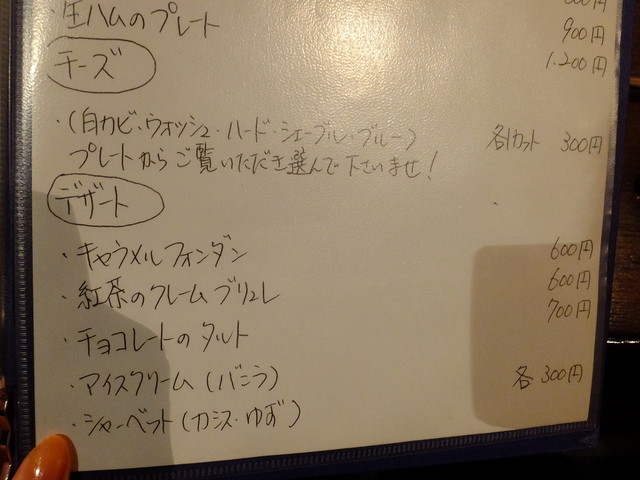 ・生ハムのプレート 900円
1.200円
チーズ
・(白カビ・ウォッシュ・ハード・シェーブル・ブルー)
プレートからご覧いただき選んで下さいませ! 各1カット 300円
デザート
・キャラメルフォンダン 600円
・紅茶のクレームブリュレ 600円
・チョコレートのタルト 700円
・アイスクリーム(バニラ)
・シャーベット(カシス・ゆず) 各300円